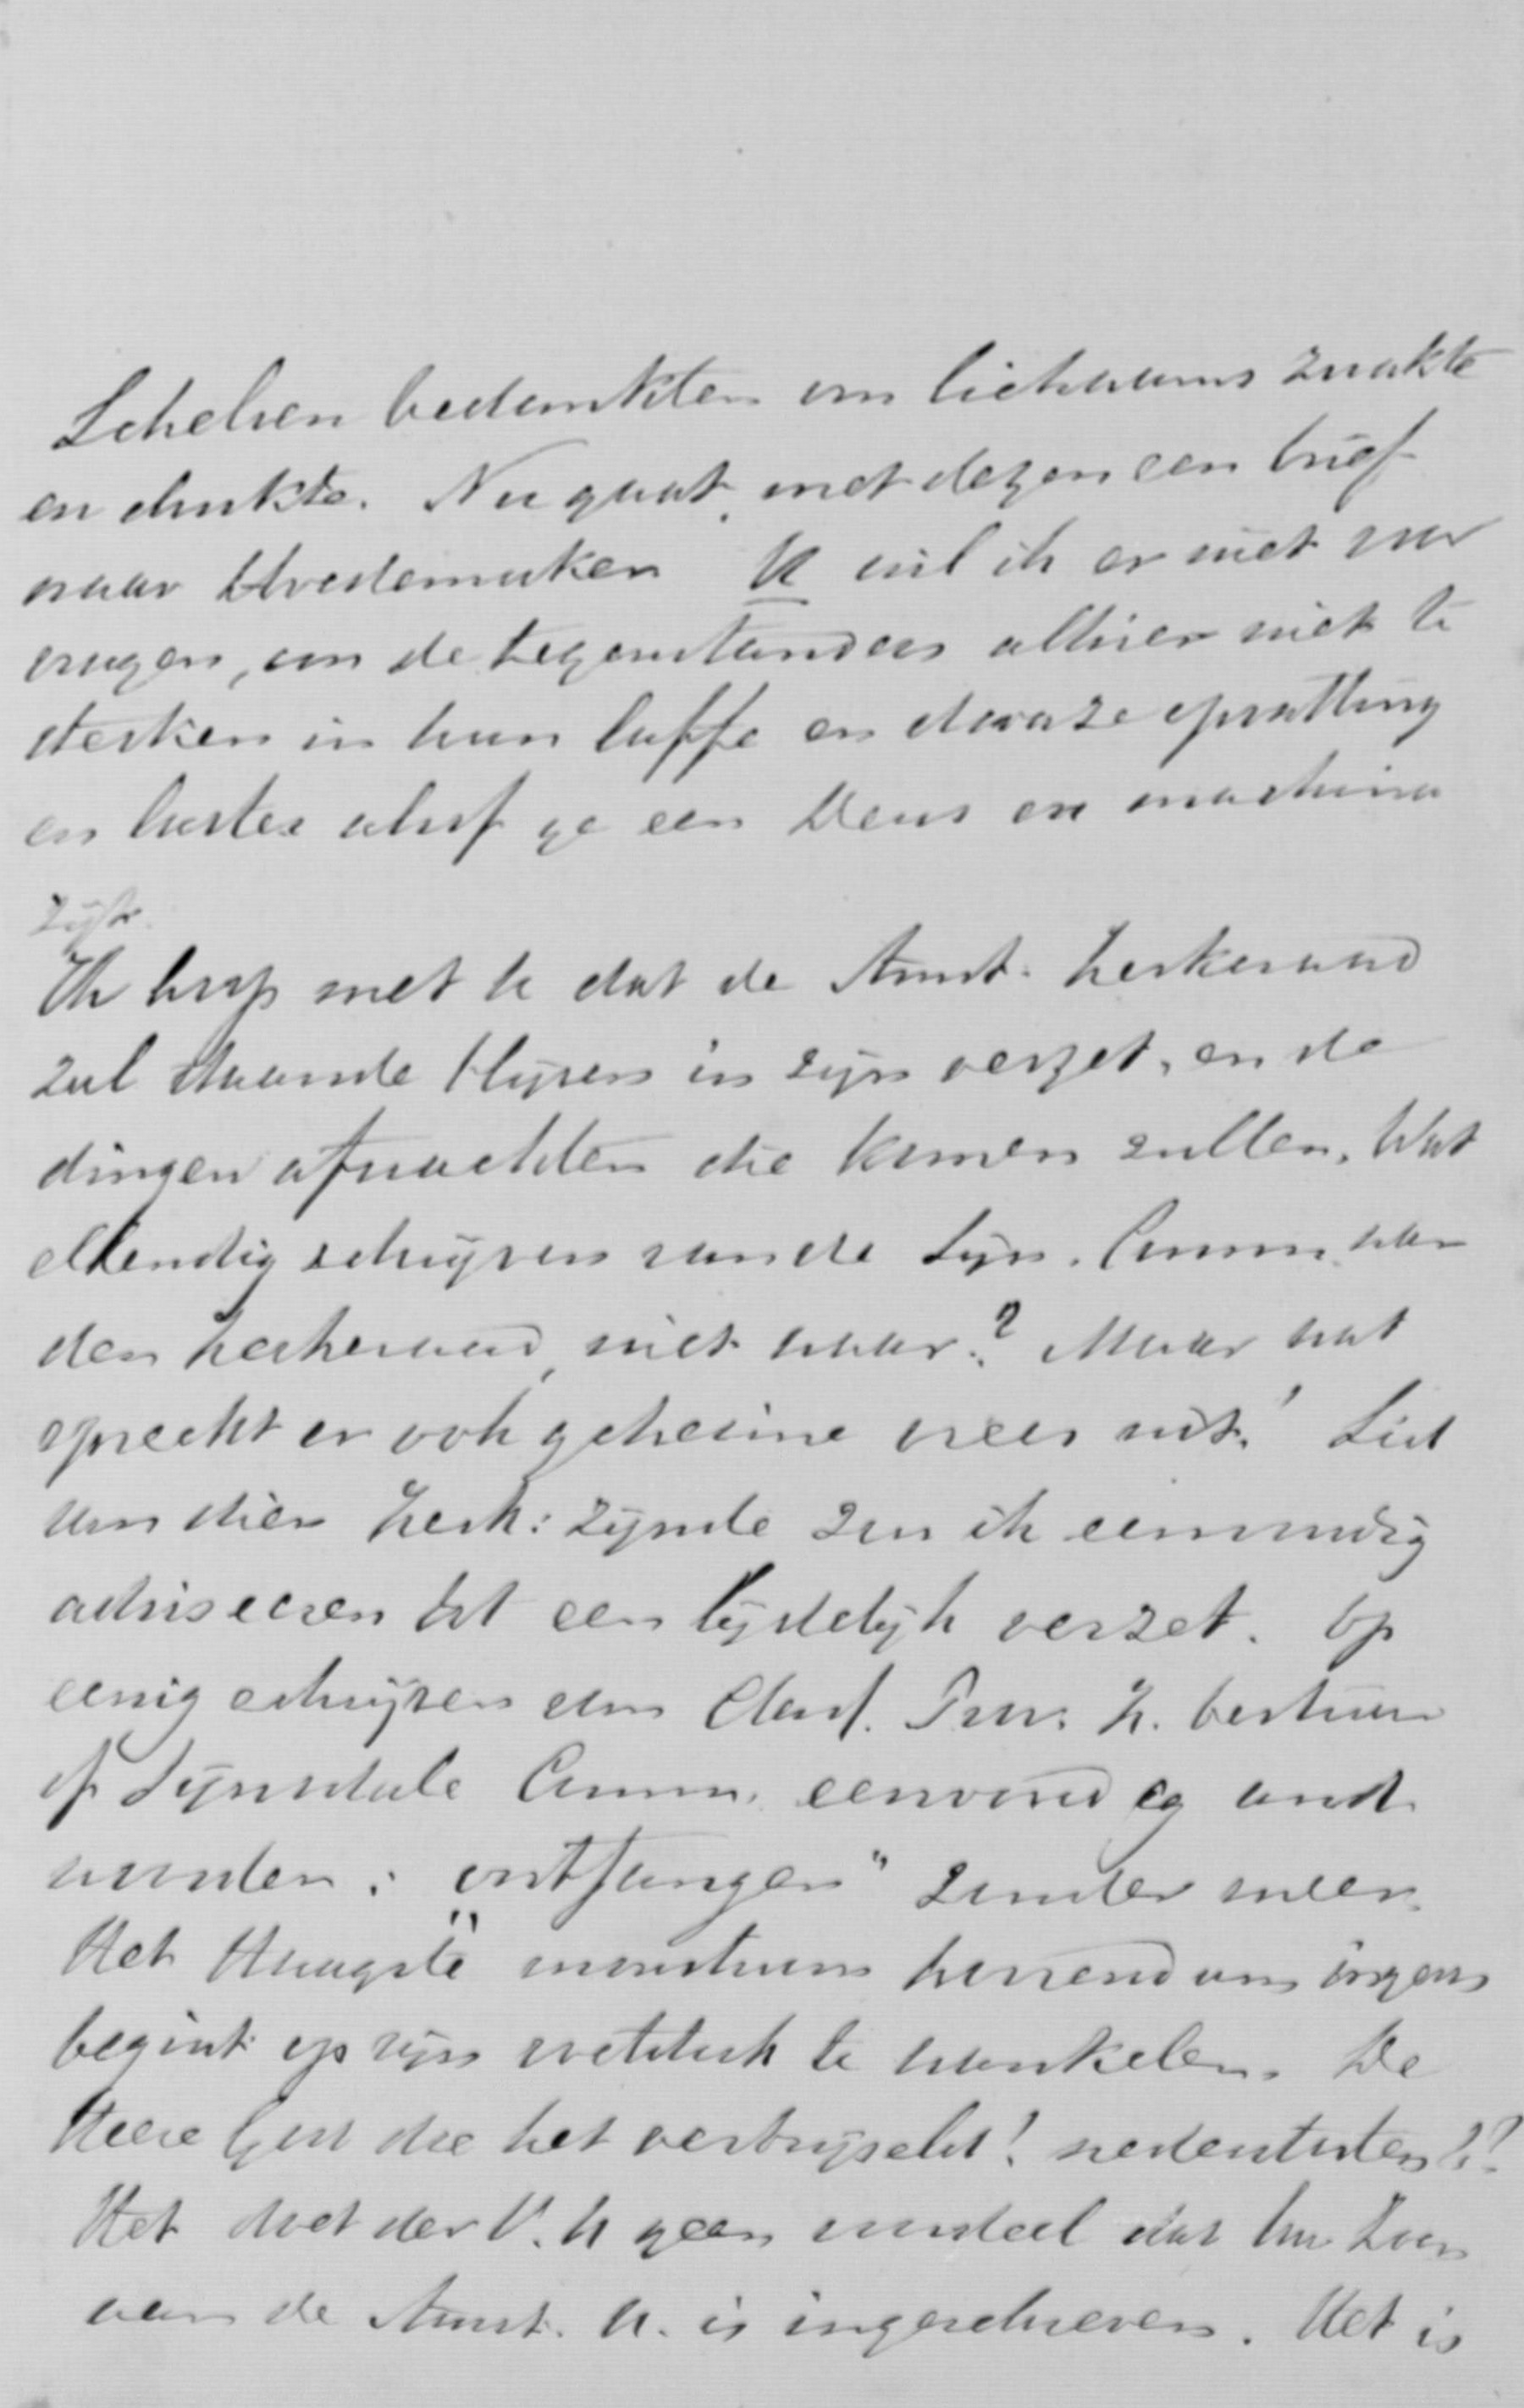 Schelven bedankten om lichaams zwakte
en drukte. Nu gaat met dezen een brief
naar Hvedemaker U wil ik er niet voor
vragen, om de tegenstanders alhier niet te
sterken in hun laffe en dwaze opvatting
en laster alsof ge een Deus ex machina
zijt.
Ik hoop met U dat de Amst. Kerkeraad
zal staande blijven in zijn verzet, en de
dingen afwachten die komen zullen. Wat
ellendig schrijven van de Syn. Comm. aan
den Kerkeraad, niet waar? Maar wat
spreekt er ook geheime vrees uit! Lid
van dien Kerk: zijnde zou ik eenvoudig
adviseeren tot een lijdelijk verzet. Op
eenig schrijven van Class. Prov. K. bestuur
of Synodale Comm. eenvoudig ant
woorden: "ontfangen" zonder meer.
Het Haagste monstrum horrendum ingens
begint op zijn voetstuk te wankelen. De
Heere God die het verbrijzelt!
Het doet der V. U geen voordeel dat Uw Zoon
aan de Amst. U. is ingeschreven. Het is